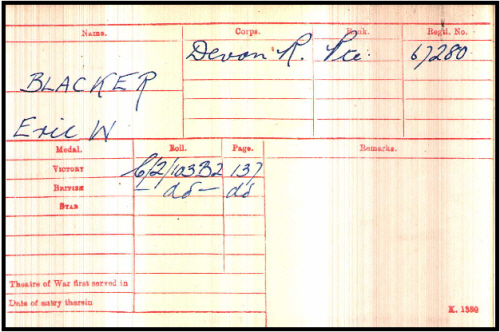 Name. Corps. Rank. Regtl. No.
Devon R. Pte. 67280
BLACKER
Eric W
Medal. Roll. Page. Remarks.
VICTORY C/2/103B2 137
BRITISH – do – do
STAR
Theatre of War first served in
Date of entry therein
K. 1380